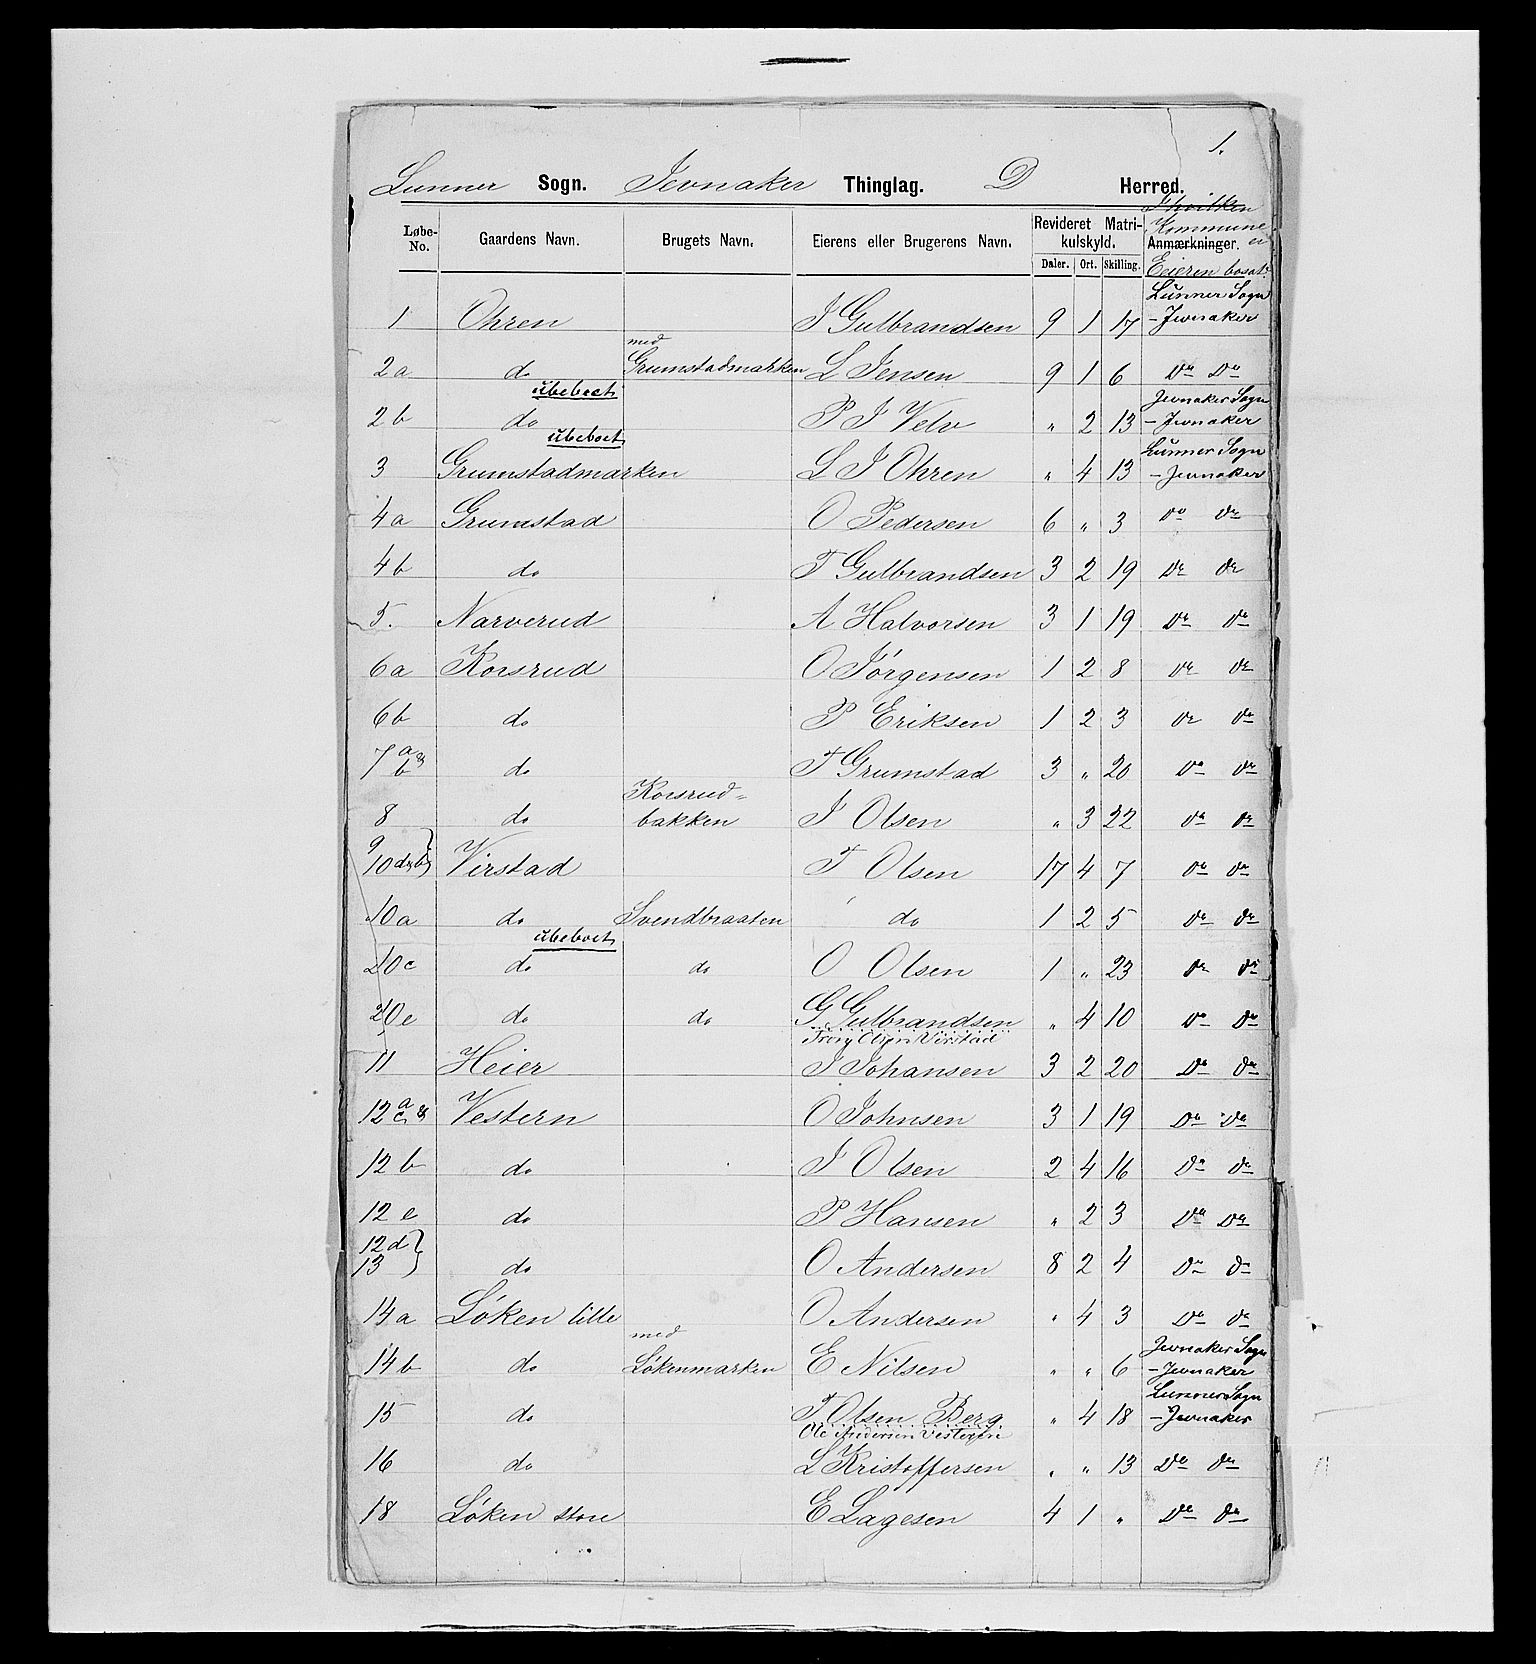 1.
Lunner Sogn. Jevnaker Thinglag. D Herred.
I hvilken Kommune er Eieren bosat.
Løbe-No. Gaardens Navn. Brugets Navn. Eierens eller Brugerens Navn. Revideret Matrikulskyld. Anmærkninger.
Daler. Ort. Skilling.
1 Ohren I Gulbrandsen 9 1 17 Lunner Sogn - Jevnaker
2a do med Grumstadmarken L Jensen 9 1 6 Do Do
2b do ubeboet P I Velo " 2 13 Jevnaker Sogn - Jevnaker
3 Grumstadmarken ubeboet L I Ohren " 4 13 Lunner Sogn - Jevnaker
4a Grumstad O Pedersen 6 " 3 Do Do
4b do T Gulbrandsen 3 2 19 Do Do
5. Narverud A Halvorsen 3 1 19 Do Do
6a Korsrud O Jörgensen 1 2 8 Do Do
6b do P Eriksen 1 2 3 Do Do
7 a & b do T Grumstad 3 " 20 Do Do
8 do Korsrud=bakken I Olsen " 3 22 Do Do
9 10 d & b } Virstad T Olsen 17 4 7 Do Do
10a do Svendbraaten do 1 2 5 Do Do
10c do ubeboet do O Olsen 1 " 23 Do Do
10e do do G Gulbrandsen " 4 10 Do Do
Olsen Virstad
11 Heier I Johansen 3 2 20 Do Do
12 a & c Vestern O Johnsen 3 1 19 Do Do
12 b do I Olsen 2 4 16 Do Do
12 e do P Hansen " 2 3 Do Do
12 d 13 } do O Andersen 8 2 4 Do Do
14a Löken lille O Andersen " 4 3 Do Do
14b do med Lökenmarken E Nilsen " " 6 Jevnaker Sogn - Jevnaker
15 do T Olsen Berg " 4 18 Lunner Sogn - Jevnaker
Ole Andersen Vestern
16 do L Kristoffersen " " 13 Do Do
18 Löken store E Lagesen 4 1 " Do Do